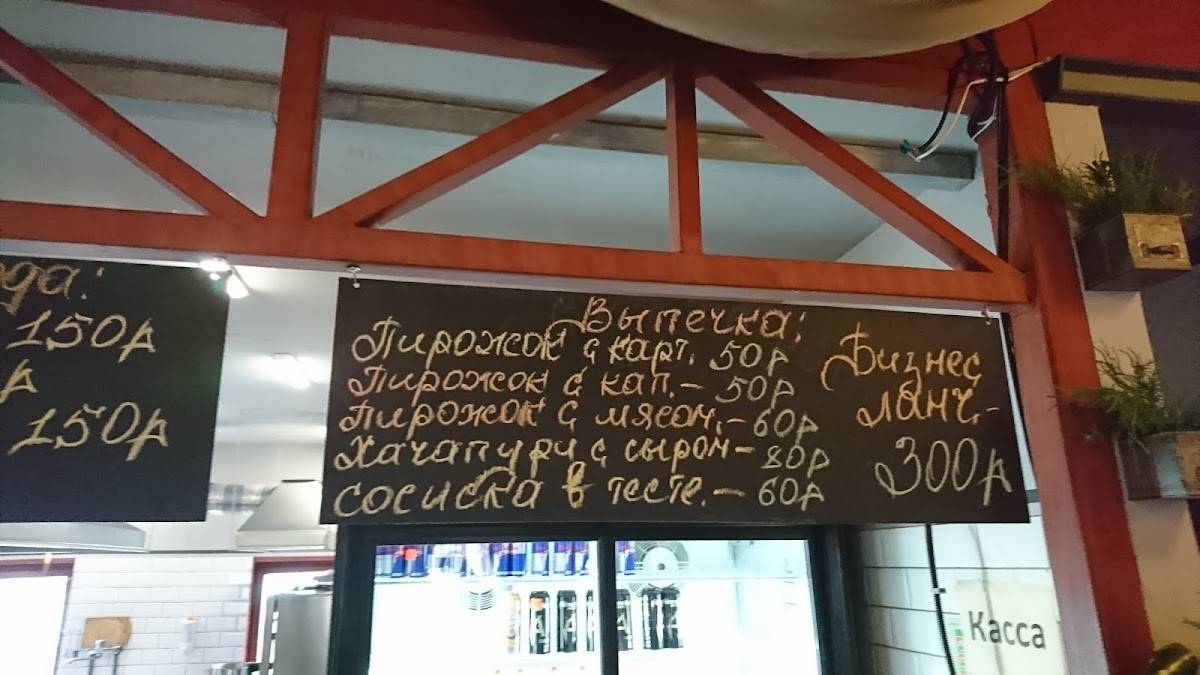 ода:
150р
р
150р
Выпечка:
Пирожок с карт. 50р
Пирожок с кап. - 50р
Пирожок с мясом. - 60р
Хачапури с сыром - 80р
Сосиска в тесте. - 60р
Бизнес
ланч. -
300р
Касса